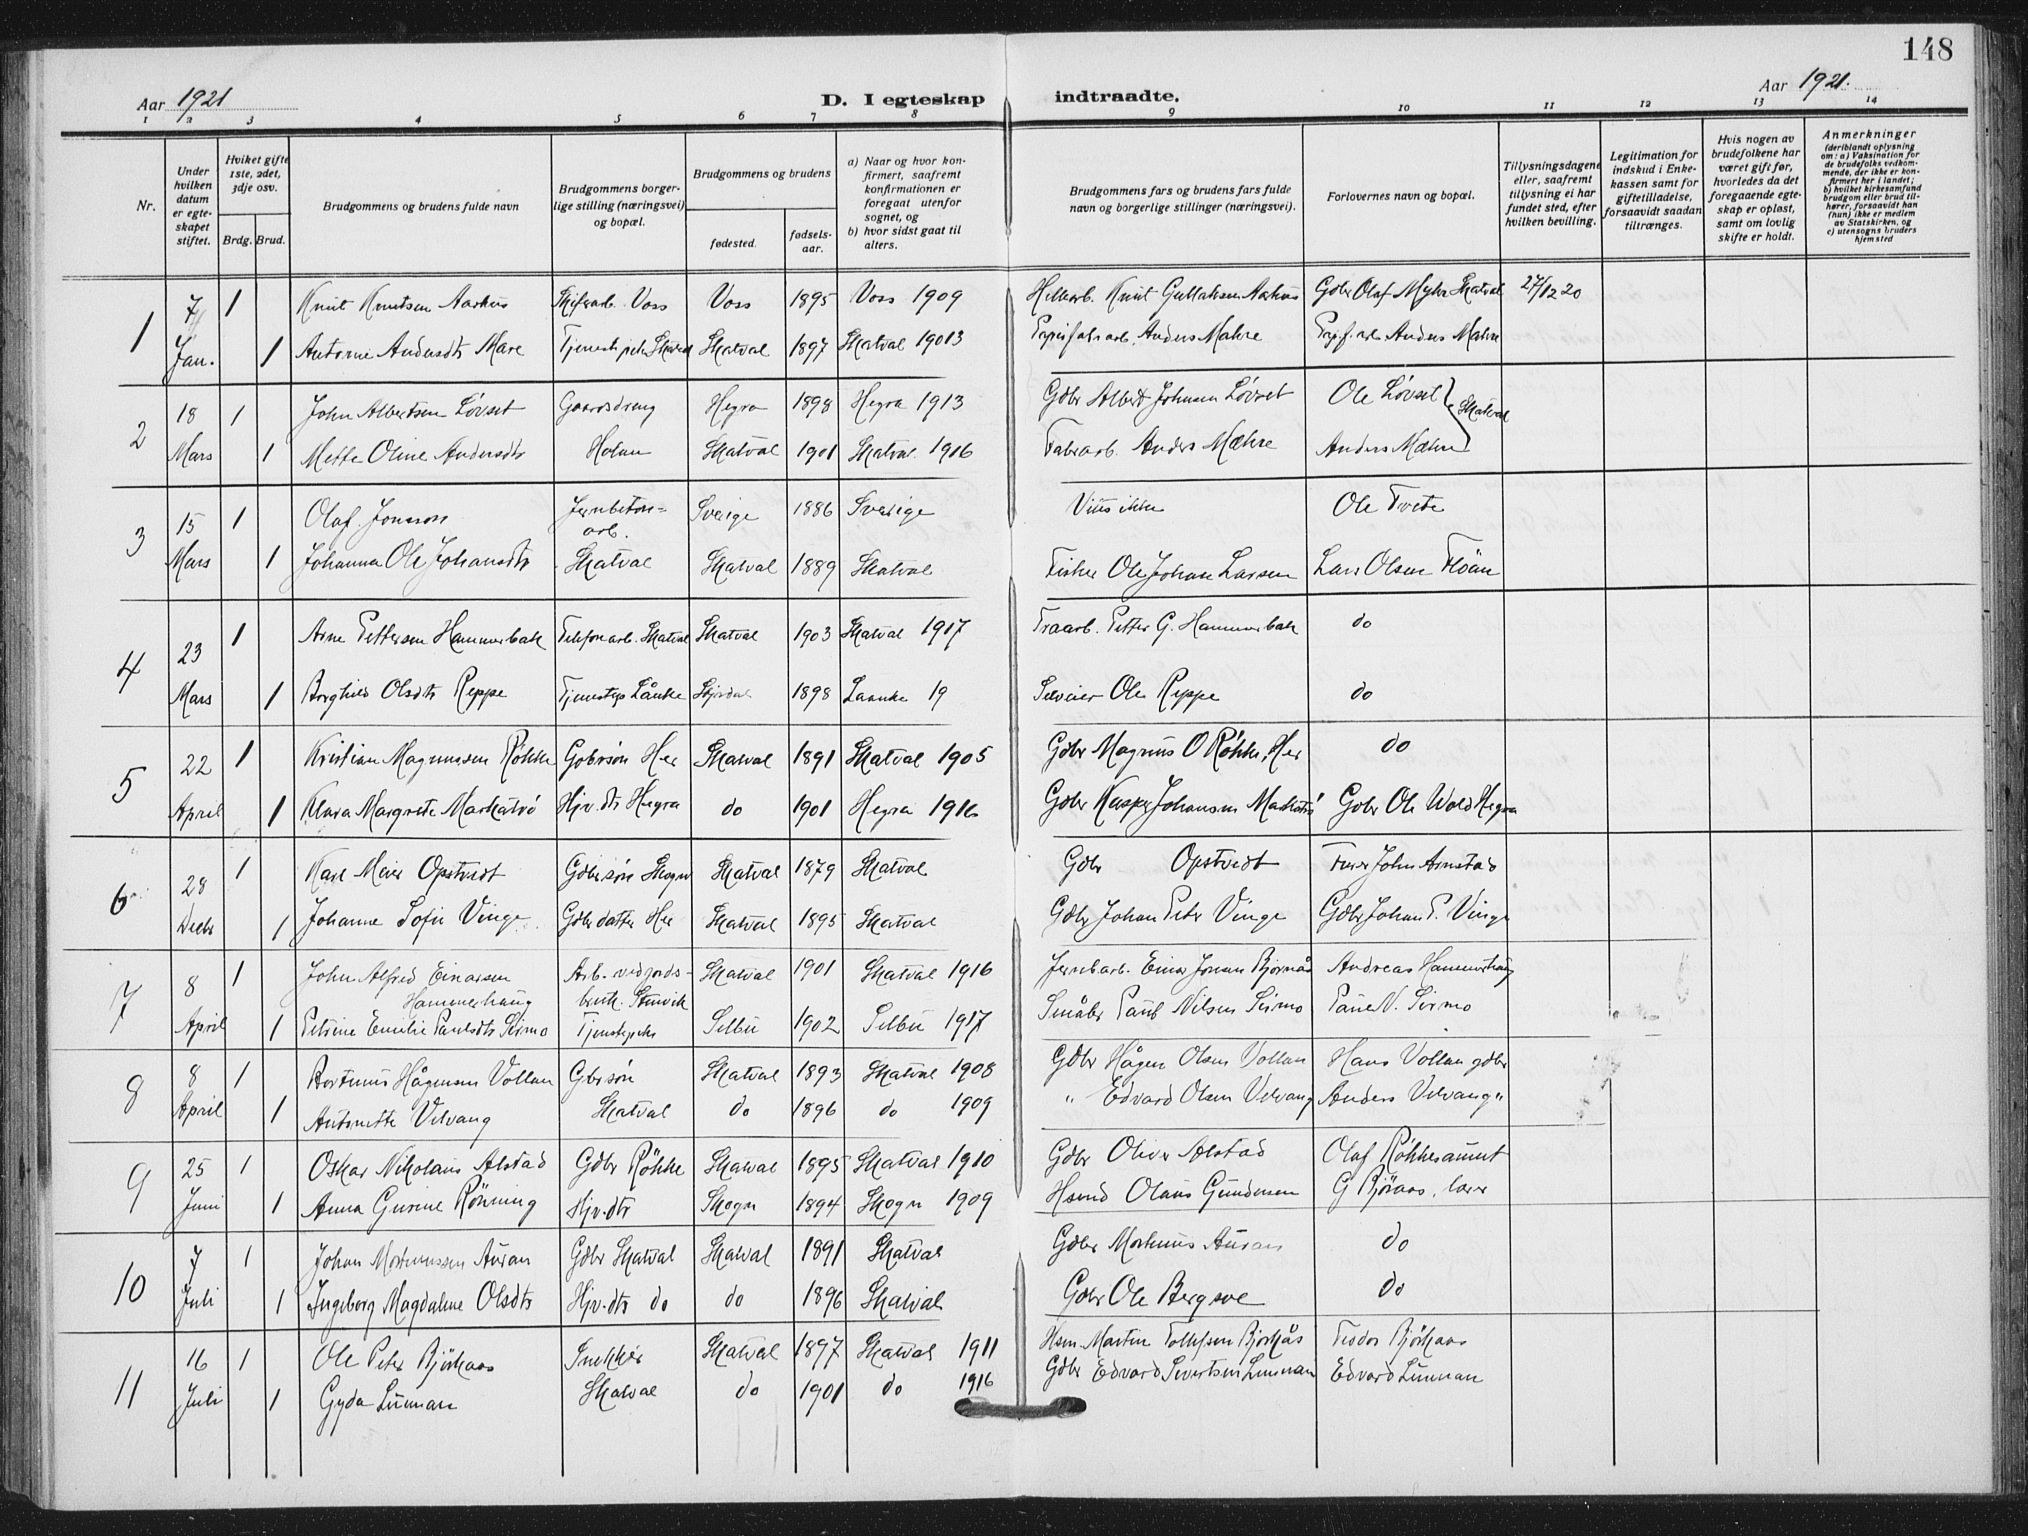 148
Aar 1921
D. I egteskap indtraadte.
Aar 1921.
1 2 3 4 5 6 7 8 9 10 11 12 13 14
Nr.
Under hvilken datum er egte-skapet stiftet.
Hviket gifte 1ste, 2det, 3dje osv.
Brdg. Brud.
Brudgommens og brudens fulde navn
Brudgommens borger-lige stilling (næringsvei) og bopæl.
Brudgommens og brudens
fødested.
fødsels-aar.
a) Naar og hvor kon-firmert, saafremt konfirmationen er foregaat utenfor sognet, og
b) hvor sidst gaat til alters.
Brudgommens fars og brudens fars fulde navn og borgerlige stillinger (næringsvei).
Forlovernes navn og bopæl.
Tillysningsdagene eller, saafremt tillysning ei har fundet sted, efter hvilken bevilling.
Legitimation for indskud i Enke-kassen samt for giftetilladelse, forsaavidt saadan tiltrænges.
Hvis nogen av brudefolkene har været gift før, hvorledes da det foregaaende egte-skap er opløst, samt om lovlig skifte er holdt.
Anmerkninger
(deriblandt oplysning om: a) Vaksination for de brudefolks vedkom-mende, der ikke er kon-firmert her i landet; b) hvilket kirkesamfund brudgom eller brud til-hører, forsaavidt han (hun) ikke er medlem av Statskirken, og c) utensogns bruders hjemsted
1 7 1 Knut Knutsen Aarhus Skifrarb. Voss Voss 1895 Voss 1909 Knut Aarhus Gdbr Olaf Myhr Skatval 27/12 20
Jan. 1 Antonie Andersdtr Mære Skatval 1897 Skatval 19013 Anders Mæhre Anders Mæhre
2 18 1 John Albertsen Lövset Gaardsdreng Hegra 1898 Hegra 1913 Gdbr Albert Johnsen Lövset Ole Lövset Skatval
Mars 1 Mette Oline Andersdtr Skatval 1901 Skatval 1916 Fabrarb. Anders Mæhre Anders Mæhre
3 15 1 Olaf Jonsson Jernbeton= arb. Sverige 1886 Sverige Vites ikke Ole Tvete
Mars 1 Johanna Ole Johansdtr Skatval Skatval 1889 Skatval Fisker Ole Johan Larsen Lars Olsen Flöan
4 23 1 Arne Pettersen Hammerbak Telefonarb. Skatval Skatval 1903 Skatval 1917 Petter G. Hammerbak do
Mars 1 Borghild Olsdtr Reppe Tjenestep Lånke Stjørdal 1898 Laanke 19 Selveier Ole Reppe do
5 22 1 Kristian Magnussen Røkke Gdbrsön Her Skatval 1891 Skatval 1905 Gdbr Magnus O Røkke, Her do
April 1 Klara Margrete Markatrö Hjv.dtr Hegra do 1901 Hegra 1916 Gdbr Kasper Johansen Markatrö Gdbr Ole Wold Hegra
6 28 1 Karl Meier Opstvedt Gdbrsön Skogn Skatval 1879 Skatval Gdbr Opstvedt John Arnstad
Decbr 1 Johanne Sofie Vinge Gdbrdatter Her Skatval 1895 Skatval Gdbr Johan Petr Vinge Gdbr Johan P. Vinge
7 8 1 John Alfred Einarsen Hammerhaug Arb. ved jords-bruk. Skatval 1901 Skatval 1916 Jernbarb. Einar Johan Bjørnås Andreas Hammerhaug
April 1 Petrine Emilie Paulsdtr Sirmo Selbu 1902 Selbu 1917 Småbr Paul Nilsen Sirmo Paul N. Sirmo
8 8 1 Hågensen Vollan Gbrsön Skatval 1893 Skatval 1908 Gdbr Hågen Olsen Vollan Hans Vollan gdbr
April 1 Antonette Velvang Skatval do 1896 do 1909 " Edvard Olsen Velvang Anders Velvang "
9 25 1 Oskar Nikolaus Alstad Gdbr Röhke Skatval 1895 Skatval 1910 Gdbr Oliver Alstad Olaf Röhkesaunet
Juni 1 Anna Gurine Rönning Hjv.dtr Skogn 1894 Skogn 1909 Hsmd Olaus Gundersen G Björaas, lærer
10 7 1 Johan Mortinussen Auran Gdbr Skatval Skatval 1891 Skatval Gdbr Mortinus Auran do
Juli 1 Ingeborg Magdalene Olsdtr Hjv.dtr do do 1896 Skatval Gdbr Ole Bergsve do
11 16 1 Ole Peter Björkaas Snekker Skatval 1897 Skatval 1911 Hsm. Martin Tollefsen Björkås Teodor Björkaas
Juli 1 Gyda Lunnan Skatval do 1901 do 1916 Gdbr Edvard Sivertsen Lunnan Edvard Lunnan